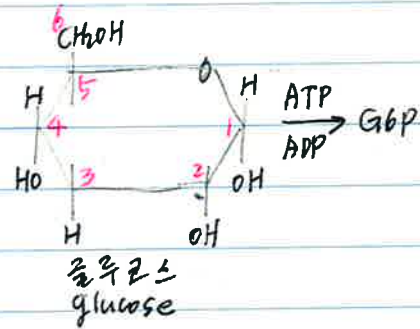 6
CH2OH
5
O
H
H
4
1
ATP
ADP
G6P
HO
3
2
OH
H
OH
글루코스
glucose